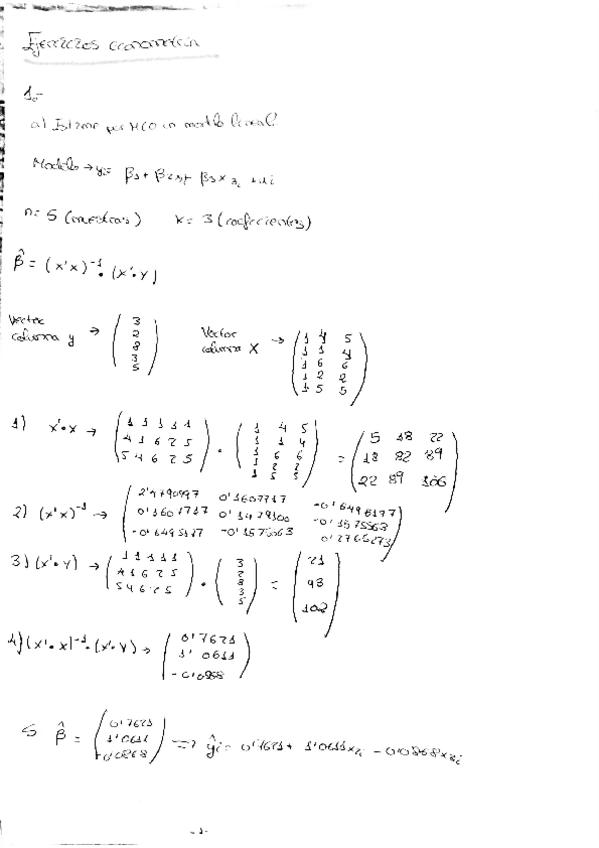 Ejercicios econometría
1.-
a) Estimar por MCO un modelo lineal?
Modelo → yi = β1 + β2 x2i + β3 x3i + ui
n = 5 (muestras) k = 3 (coeficientes)
β̂ = (x'x)⁻¹ · (x'·Y)
Vector columna y → (3 2 8 3 5) Vector columna X → (1 4 5
1 1 4
1 6 6
1 2 2
1 5 5)
1) x'·x → (1 1 1 1 1
4 1 6 2 5
5 4 6 2 5) · (1 4 5
1 1 4
1 6 6
1 2 2
1 5 5) = (5 18 22
18 82 89
22 89 106)
2) (x'x)⁻¹ →
3) (x'·Y) → (1 1 1 1 1
4 1 6 2 5
5 4 6 2 5) · (3 2 8 3 5) = (21 93 102)
4) (x'·x)⁻¹ · (x'·Y) → (0'7621
1'0611
-0'0868)
5 β̂ = (0'7621
1'0611
-0'0868) => ŷi = 0'7621 + 1'0611x2i - 0'0868x3i
- 1 -